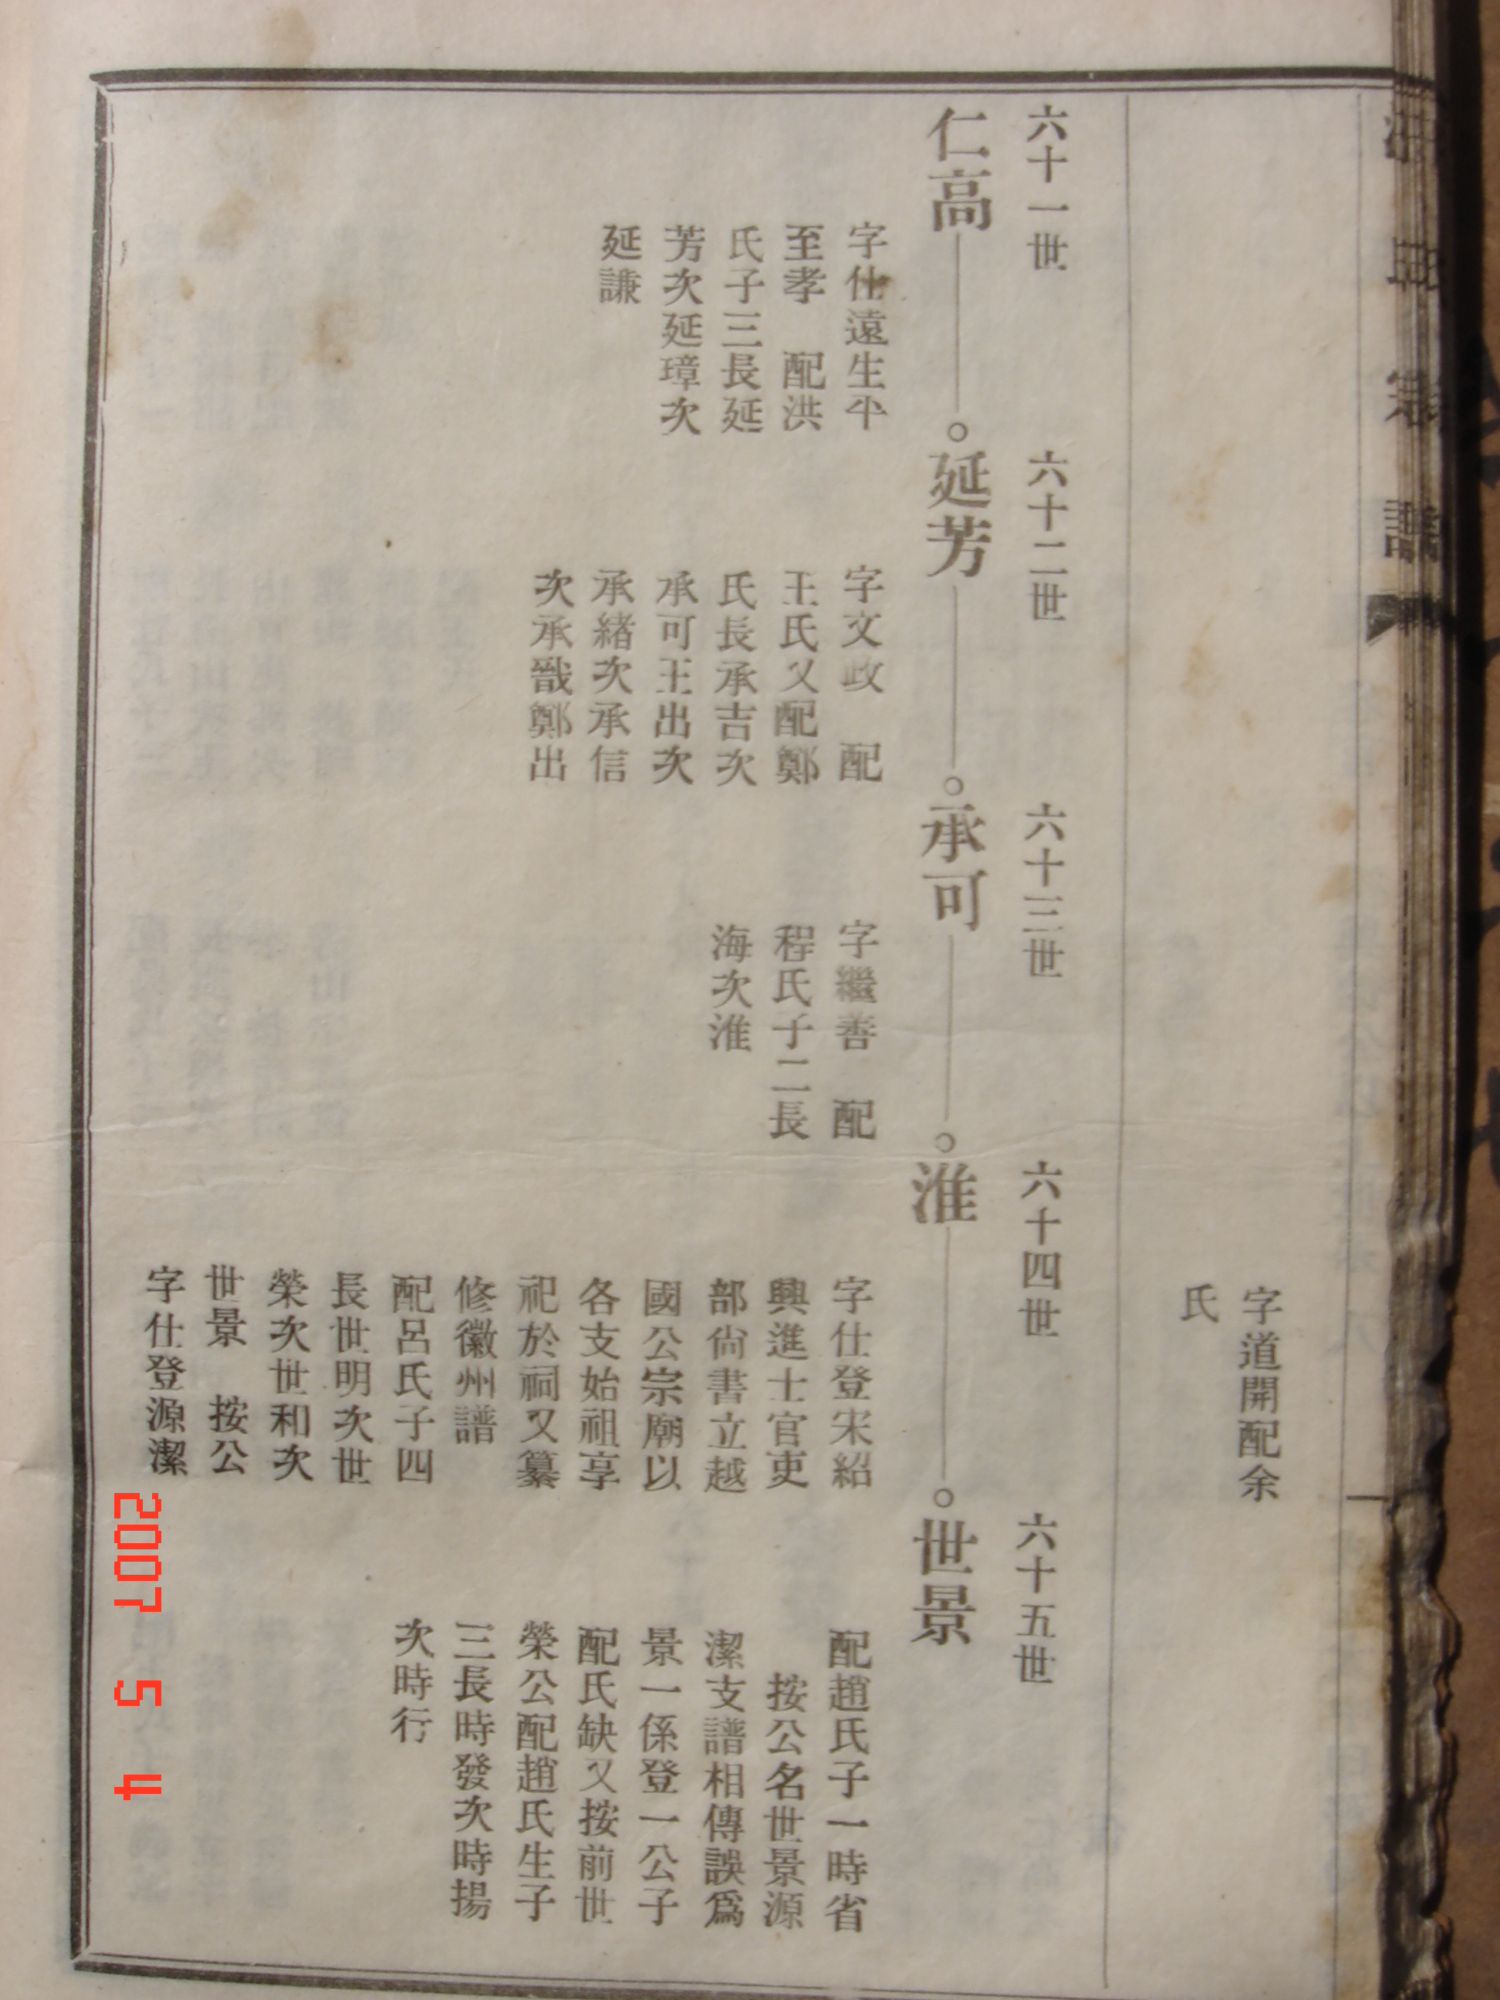 氏宗譜
字道開配余
氏
六十一世
仁高
字仕遠生平
至孝 配洪
氏子三長延
芳次延璋次
延謙
六十二世
延芳
字文政 配
王氏又配鄭
氏長承吉次
承可王出次
承緒次承信
次承戩鄭出
六十三世
承可
字繼善 配
程氏子二長
海次淮
六十四世
淮
字仕登宋紹
興進士官吏
部尙書立越
國公宗廟以
各支始祖享
祀於祠又纂
修徽州譜
配呂氏子四
長世明次世
榮次世和次
世景 按公
字仕登源潔
六十五世
世景
配趙氏子一時省
按公名世景源
潔支譜相傳誤爲
景一係登一公子
配氏缺又按前世
榮公配趙氏生子
三長時發次時揚
次時行
2007 5 4